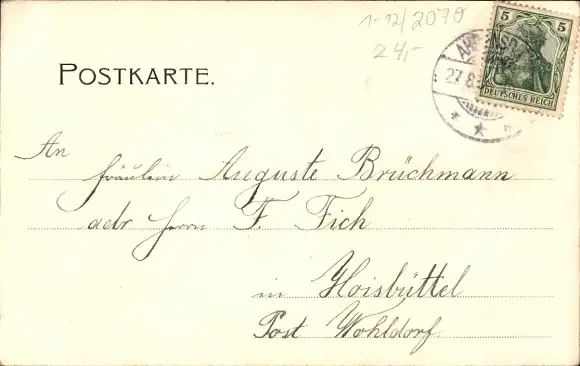 1-12/2070
24,-
5 5
DEUTSCHES REICH
27.8.
POSTKARTE.
An
Fräulein Auguste Brüchmann
adr. Herrn F. Fich
in Hoisbüttel
Post Wohldorf.